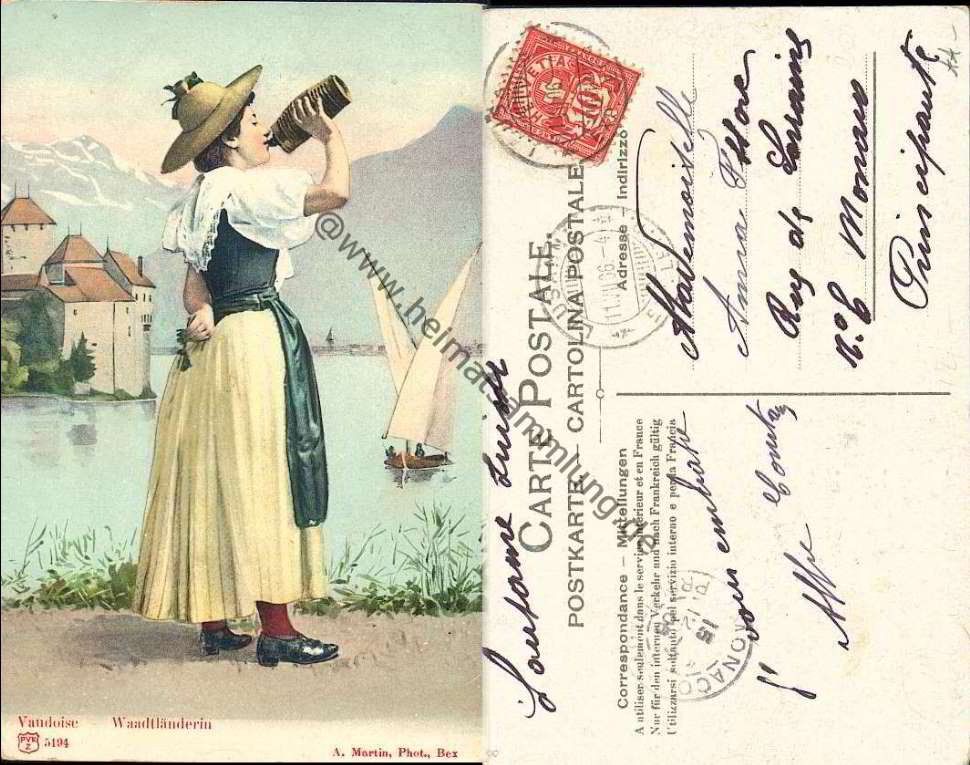 Vaudoise - Waadtländerin
PVK Z 5194
A. Martin, Phot., Bex
@www.heimatsammlung.de
CARTE POSTALE.
POSTKARTE — CARTOLINA POSTALE
Adresse — Indirizzo
Correspondance — Mitteilungen
A utiliser seulement dans le service intérieur et en France
Nur für den internen Verkehr und nach Frankreich gültig
Utilizzarsi soltanto pel servizio interno e per la Francia
HELVETIA
10
MONACO
15
Mademoiselle
Anna
Rue de
N.º 6 Monaco
Principauté
vous embrasse